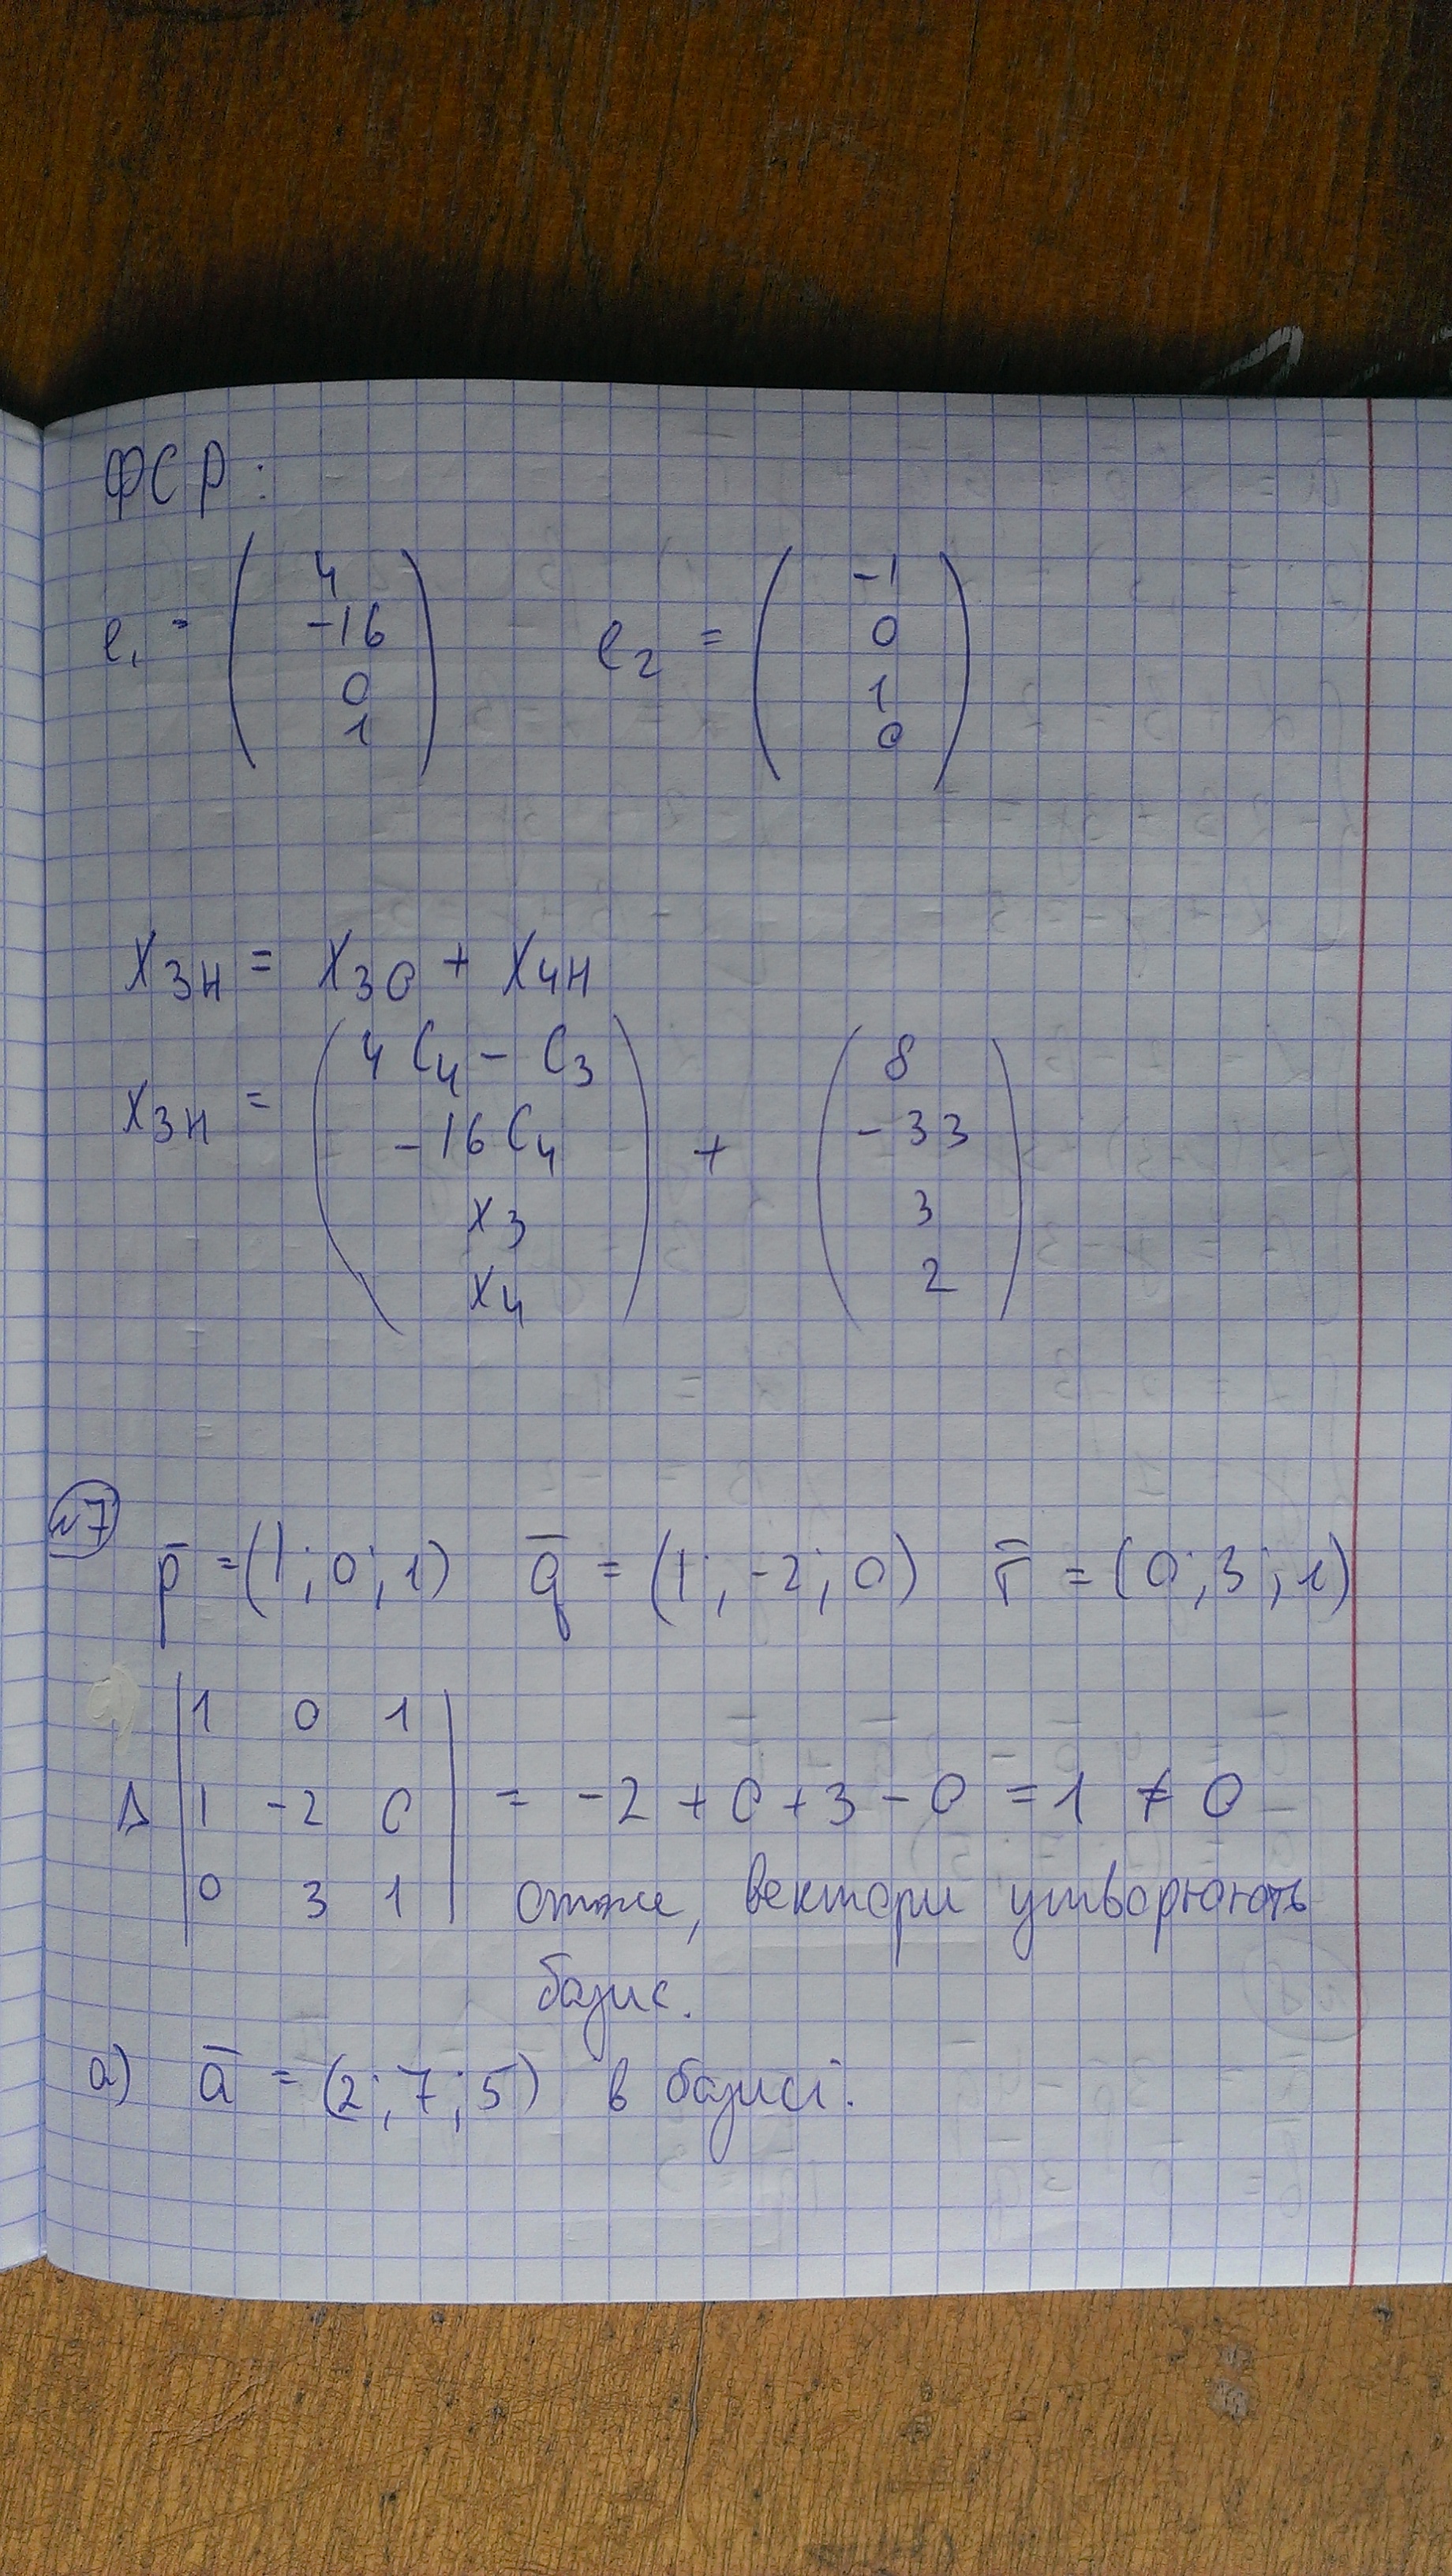 ФСР:
e₁ = ( 4 -16 0 1 ) e₂ = ( -1 0 1 0 )
X₃н = X₃о + X₄н
X₃н = ( 4C₄ - C₃ -16C₄ x₃ x₄ ) + ( 8 -33 3 2 )
№7
p̄ = (1; 0; 1) q̄ = (1; -2; 0) r̄ = (0; 3; 1)
1 0 1
Δ 1 -2 0 = -2 + 0 + 3 - 0 = 1 ≠ 0
0 3 1 отже, вектори утворюють
базис.
а) ā = (2; 7; 5) в базисі.